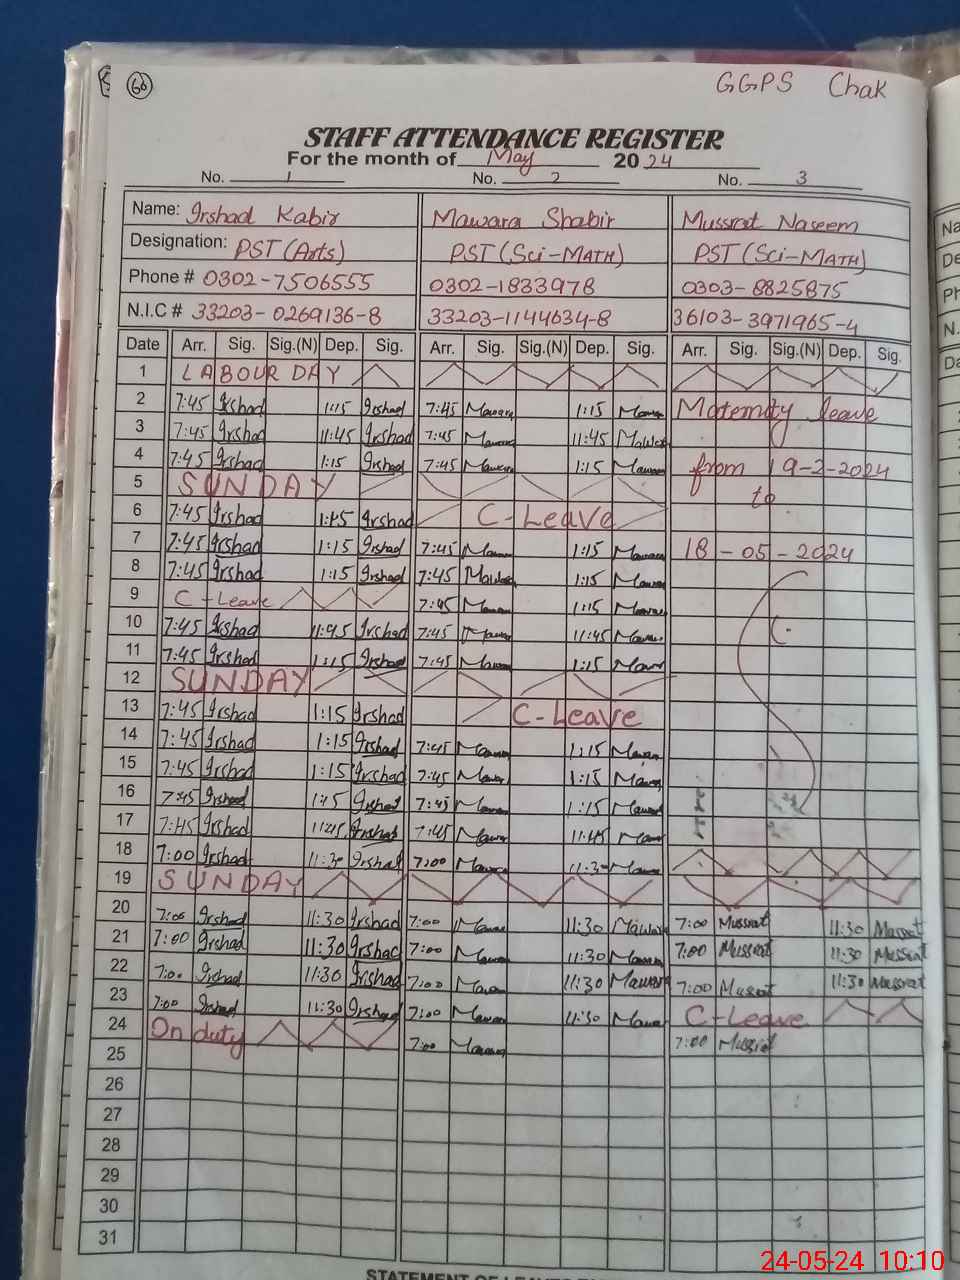 60
GGPS Chak
STAFF ATTENDANCE REGISTER
For the month of May 2024
No. 1 No. 2 No. 3
Name: Irshad Kabir Mawara Shabir Mussrat Naseem
Designation: PST (Arts) PST (Sci-MATH) PST (Sci-MATH)
Phone # 0302-7506555 0302-1833978 0303-8825875
N.I.C # 33203-0269136-8 33203-1144634-8 36103-3971965-4
Date Arr. Sig. Sig.(N) Dep. Sig. Arr. Sig. Sig.(N) Dep. Sig. Arr. Sig. Sig.(N) Dep. Sig.
1 LABOUR DAY
2 7:45 Irshad 1:15 Irshad 7:45 Mawara 1:15 Mawara Maternity leave
3 7:45 Irshad 11:45 Irshad 7:45 Mawara 11:45 Mawara
4 7:45 Irshad 1:15 Irshad 7:45 Mawara 1:15 Mawara from 19-2-2024
5 SUNDAY to
6 7:45 Irshad 1:15 Irshad C-Leave
7 7:45 Irshad 1:15 Irshad 7:45 Mawara 1:15 Mawara 18-05-2024
8 7:45 Irshad 1:15 Irshad 7:45 Mawara 1:15 Mawara
9 C-Leave 7:45 Mawara 1:15 Mawara
10 7:45 Irshad 11:45 Irshad 7:45 Mawara 11:45 Mawara
11 7:45 Irshad 1:15 Irshad 7:45 Mawara 1:15 Mawara
12 SUNDAY
13 7:45 Irshad 1:15 Irshad C-Leave
14 7:45 Irshad 1:15 Irshad 7:45 Mawara 1:15 Mawara
15 7:45 Irshad 1:15 Irshad 7:45 Mawara 1:15 Mawara
16 7:45 Irshad 1:15 Irshad 7:45 Mawara 1:15 Mawara
17 7:45 Irshad 11:45 Irshad 7:45 Mawara 11:45 Mawara
18 7:00 Irshad 11:30 Irshad 7:00 Mawara 11:30 Mawara
19 SUNDAY
20 7:00 Irshad 11:30 Irshad 7:00 Mawara 11:30 Mawara 7:00 Mussrat 11:30 Mussrat
21 7:00 Irshad 11:30 Irshad 7:00 Mawara 11:30 Mawara 7:00 Mussrat 11:30 Mussrat
22 7:00 Irshad 11:30 Irshad 7:00 Mawara 11:30 Mawara 7:00 Mussrat 11:30 Mussrat
23 7:00 Irshad 11:30 Irshad 7:00 Mawara 11:30 Mawara C-Leave
24 On duty 7:00 Mawara 7:00 Mussrat
25
26
27
28
29
30
31
24-05-24 10:10